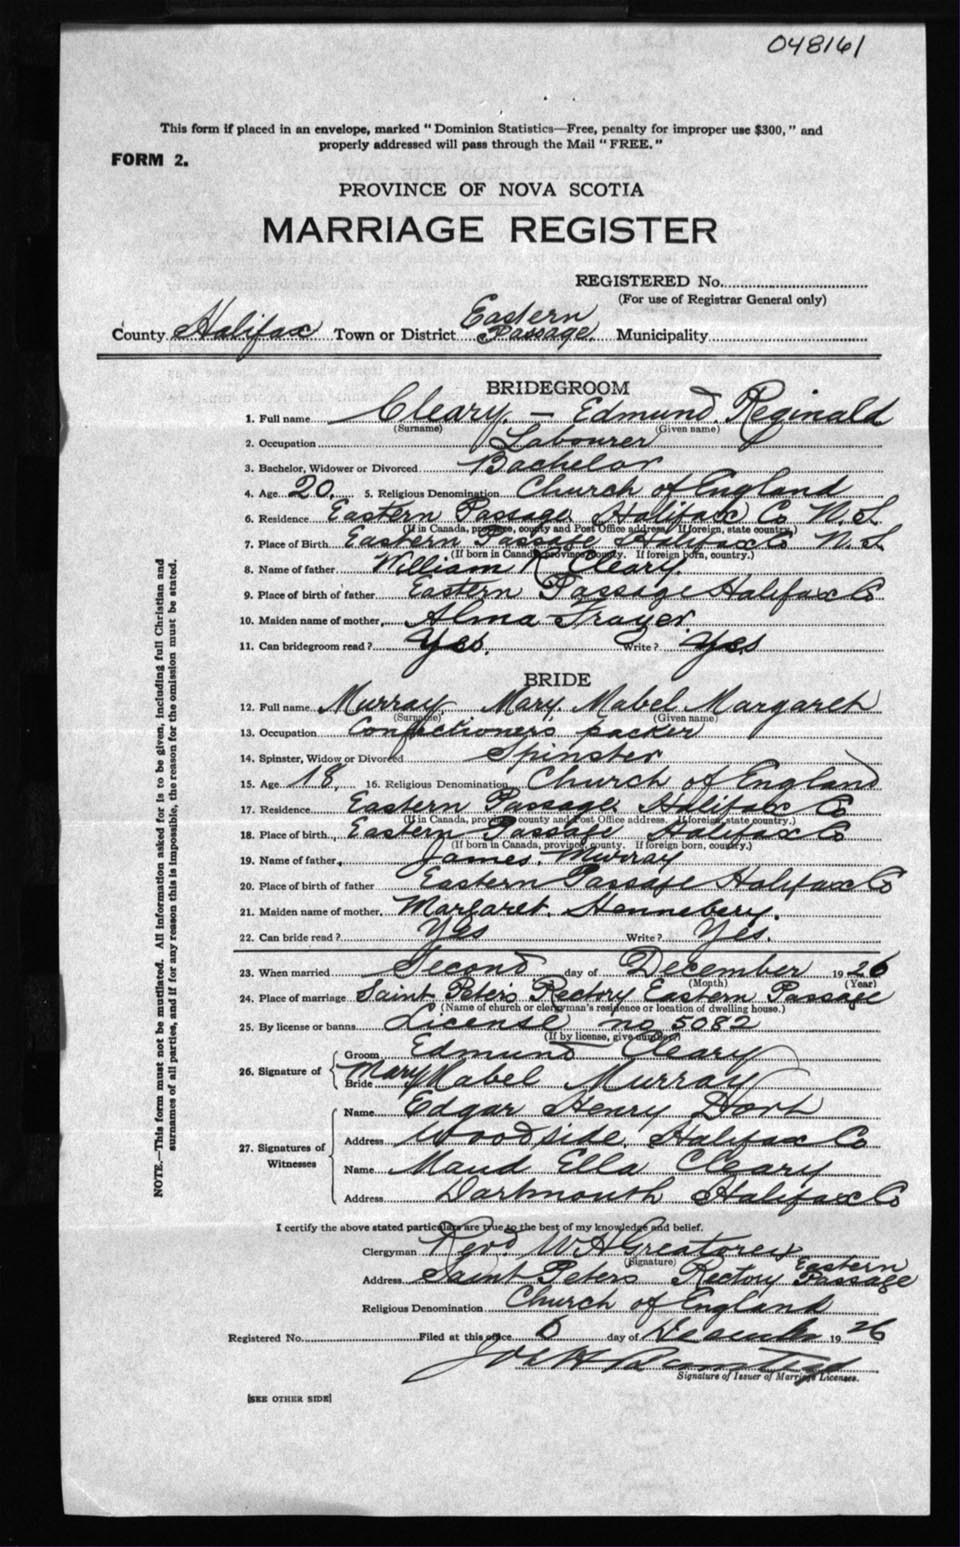 048161
This form if placed in an envelope, marked "Dominion Statistics—Free, penalty for improper use $300," and
properly addressed will pass through the Mail "FREE."
FORM 2.
PROVINCE OF NOVA SCOTIA
MARRIAGE REGISTER
REGISTERED No.
(For use of Registrar General only)
County Halifax Town or District Eastern Passage. Municipality
BRIDEGROOM
1. Full name Cleary. — Edmund. Reginald
(Surname) (Given name)
2. Occupation Labourer
3. Bachelor, Widower or Divorced Bachelor
4. Age 20. 5. Religious Denomination Church of England
6. Residence Eastern Passage Halifax Co N.S.
(If in Canada, province, county and Post Office address. If foreign, state country.)
7. Place of Birth Eastern Passage Halifax Co N.S.
(If born in Canada, province, county. If foreign born, country.)
8. Name of father William R Cleary.
9. Place of birth of father Eastern Passage Halifax Co
10. Maiden name of mother, Alma Trayer.
11. Can bridegroom read? Yes. Write? Yes
BRIDE
12. Full name Murray Mary. Mabel Margaret
(Surname) (Given name)
13. Occupation Confectioners packer
14. Spinster, Widow or Divorced Spinster
15. Age 18, 16. Religious Denomination Church of England
17. Residence Eastern Passage Halifax Co
(If in Canada, province county and Post Office address. If foreign, state country.)
18. Place of birth Eastern Passage Halifax Co
(If born in Canada, province, county. If foreign born, country.)
19. Name of father, James. Murray
20. Place of birth of father Eastern Passage Halifax Co
21. Maiden name of mother, Margaret. Hennebery.
22. Can bride read? Yes Write? Yes.
23. When married Second day of December 1926
(Month) (Year)
24. Place of marriage Saint Peter's Rectory Eastern Passage
(Name of church or clergyman's residence or location of dwelling house.)
25. By license or banns License no 5082
(If by license, give number)
26. Signature of
Groom Edmund Cleary
Bride Mary Mabel Murray
27. Signatures of Witnesses
Name Edgar Henry Dort
Address Woodside, Halifax Co
Name Maud Ella Cleary
Address Dartmouth Halifax Co
I certify the above stated particulars are true to the best of my knowledge and belief.
Clergyman Revd. W A Greatorex
(Signature)
Address Saint Peters Rectory Eastern Passage
Religious Denomination Church of England
Registered No. Filed at this office 6 day of December 1926
Signature of Issuer of Marriage Licenses.
[SEE OTHER SIDE]
NOTE.—This form must not be mutilated. All information asked for is to be given, including full Christian and
surnames of all parties, and if for any reason this is impossible, the reason for the omission must be stated.